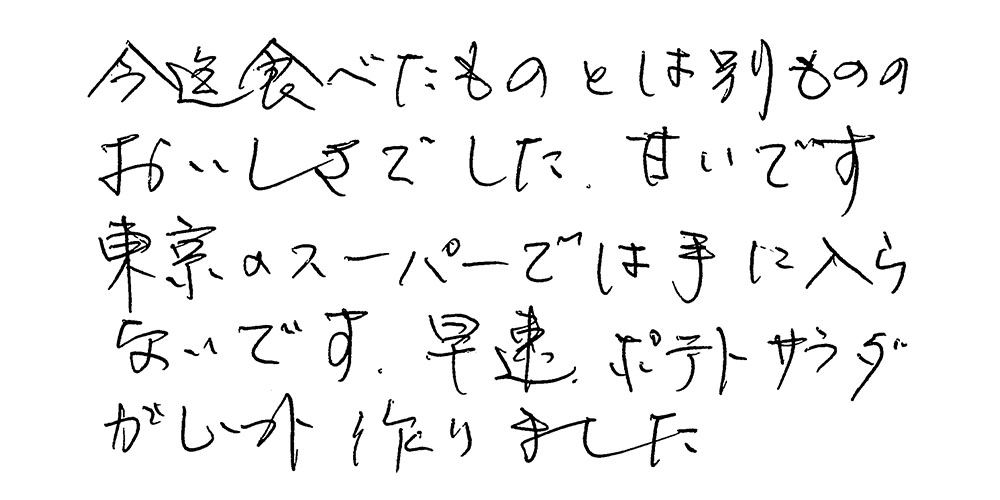 今迄食べたものとは別ものの
おいしさでした. 甘いです
東京のスーパーでは手に入ら
ないです. 早速. ポテトサラダ
がレット作りました